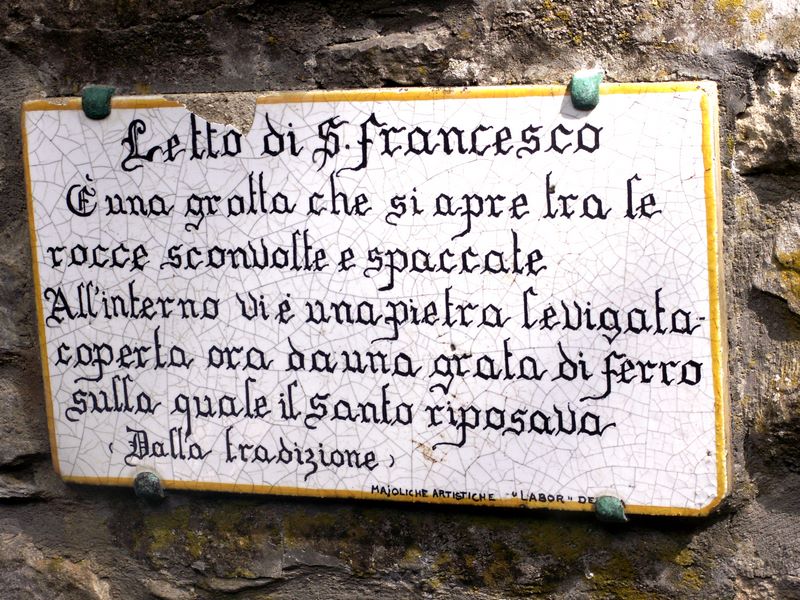 Letto di S. Francesco
È una grotta che si apre tra le
rocce sconvolte e spaccate
All'interno vi è una pietra levigata-
coperta ora da una grata di ferro
sulla quale il Santo riposava
(Dalla tradizione)
MAJOLICHE ARTISTICHE - "LABOR" DE